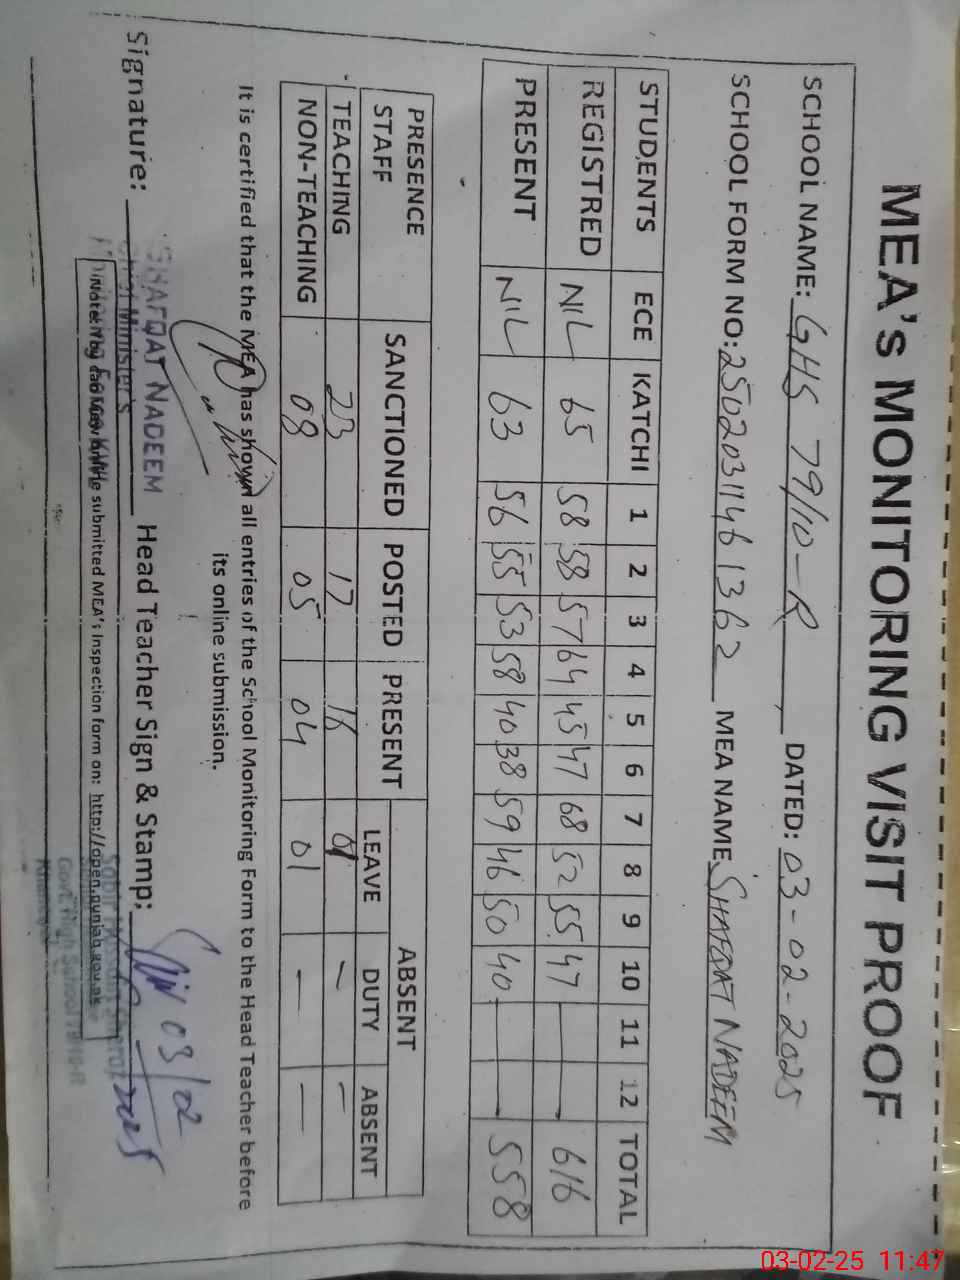 MEA's MONITORING VISIT PROOF
SCHOOL NAME: GHS 79/10-R DATED: 03-02-2025
SCHOOL FORM NO: 25020311461362 MEA NAME SHAFQAT NADEEM
STUDENTS ECE KATCHI 1 2 3 4 5 6 7 8 9 10 11 12 TOTAL
REGISTRED NIL 65 58 58 57 64 45 47 68 52 55 47 616
PRESENT NIL 63 56 55 53 58 40 38 59 46 50 40 558
PRESENCE STAFF SANCTIONED POSTED PRESENT ABSENT
LEAVE DUTY ABSENT
TEACHING 23 17 16 01 – –
NON-TEACHING 08 05 04 01 – –
It is certified that the MEA has shown all entries of the School Monitoring Form to the Head Teacher before
its online submission.
Signature: Head Teacher Sign & Stamp:
SHAFQAT NADEEM
Chief Minister's
03/02
2025
submitted MEA's inspection form on: http://open.punjab.gov.pk
Govt. High School 79/10-R
03-02-25 11:47